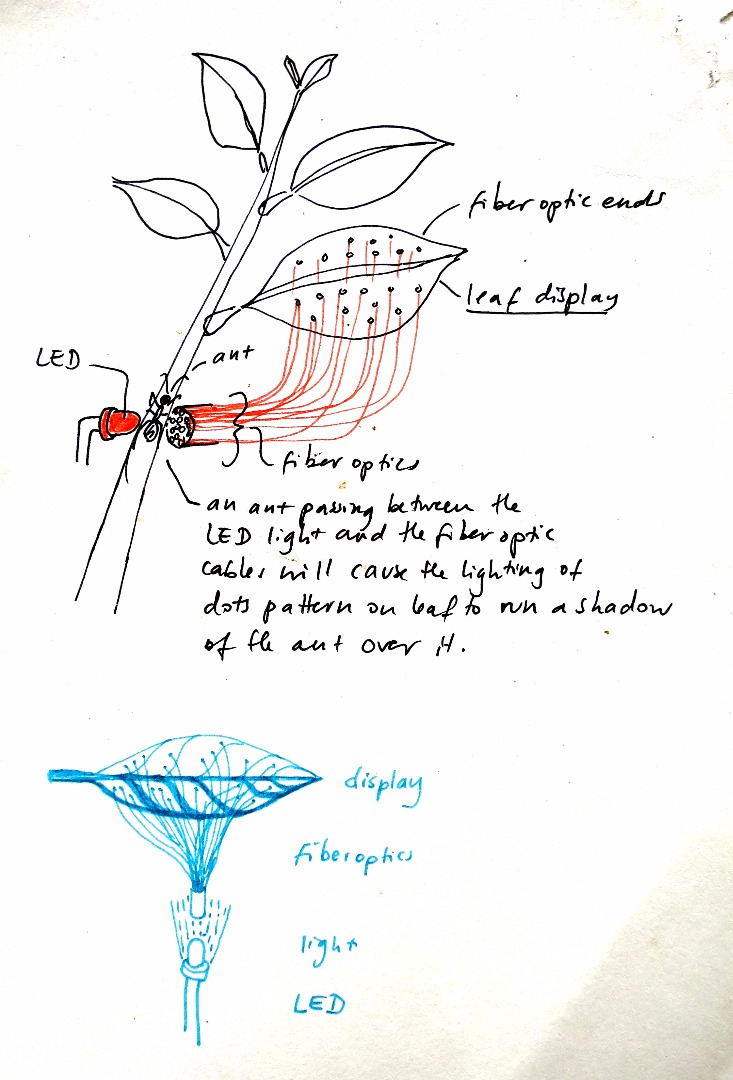 fiber optic ends
leaf display
LED
ant
fiber optics
an ant passing between the
LED light and the fiber optic
cables will cause the lighting of
dots pattern on leaf to run a shadow
of the ant over it.
display
Fiberoptics
light
LED